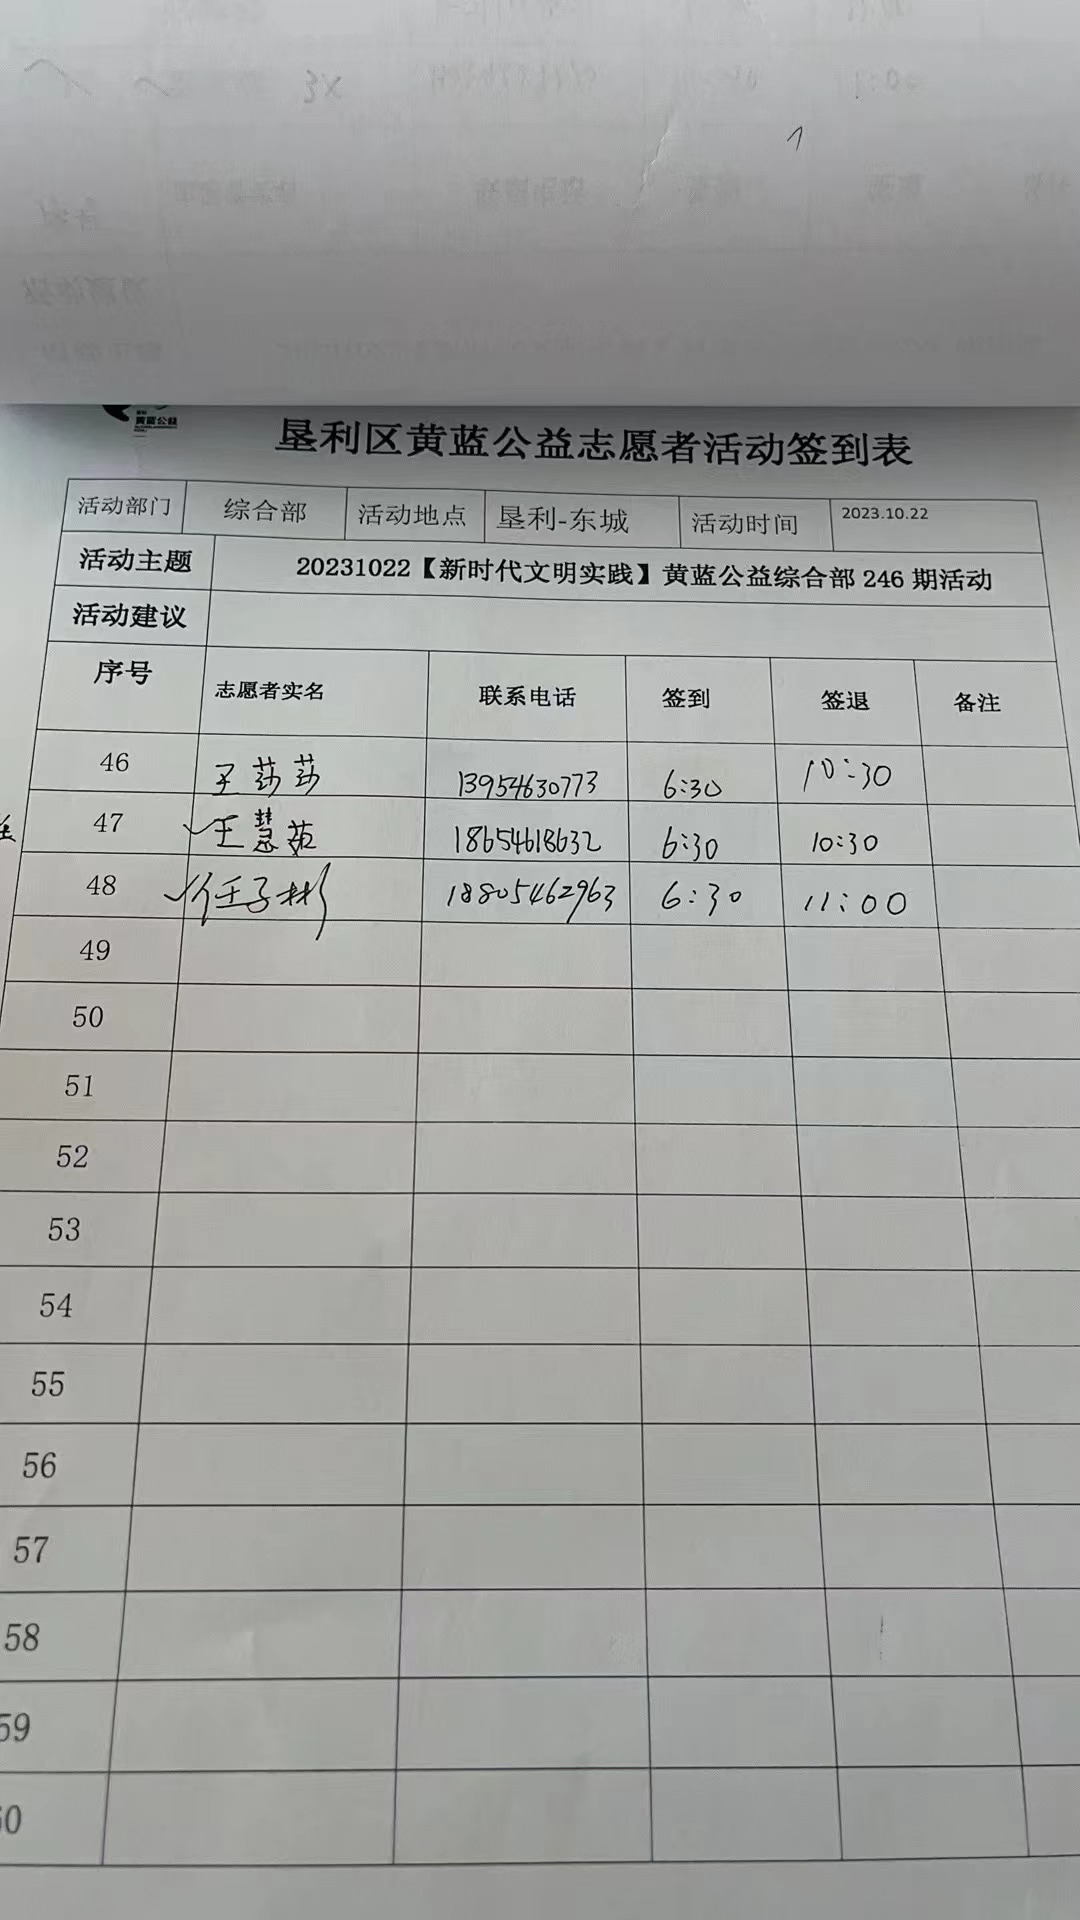 黄蓝公益
垦利区黄蓝公益志愿者活动签到表
活动部门 综合部 活动地点 垦利-东城 活动时间 2023.10.22
活动主题 20231022【新时代文明实践】黄蓝公益综合部 246 期活动
活动建议
序号 志愿者实名 联系电话 签到 签退 备注
46 王莎莎 13954630773 6:30 10:30
47 王慧茹 18654618632 6:30 10:30
48 任子彬 18805462963 6:30 11:00
49
50
51
52
53
54
55
56
57
58
59
60